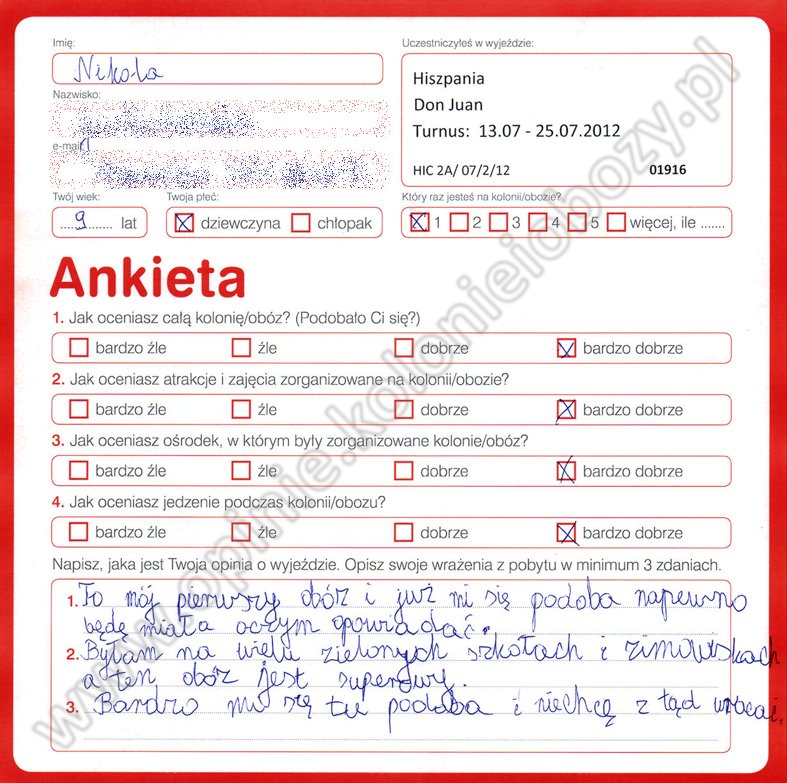 Imię:
Nikola
Uczestniczyłeś w wyjeździe:
Hiszpania
Don Juan
Turnus: 13.07 - 25.07.2012
HIC 2A/ 07/2/12 01916
Nazwisko:
e-mail
Twój wiek:
....9....... lat
Twoja płeć:
dziewczyna chłopak
Który raz jesteś na kolonii/obozie?
1 2 3 4 5 więcej, ile .......
Ankieta
1. Jak oceniasz całą kolonię/obóz? (Podobało Ci się?)
bardzo źle źle dobrze bardzo dobrze
2. Jak oceniasz atrakcje i zajęcia zorganizowane na kolonii/obozie?
bardzo źle źle dobrze bardzo dobrze
3. Jak oceniasz ośrodek, w którym były zorganizowane kolonie/obóz?
bardzo źle źle dobrze bardzo dobrze
4. Jak oceniasz jedzenie podczas kolonii/obozu?
bardzo źle źle dobrze bardzo dobrze
Napisz, jaka jest Twoja opinia o wyjeździe. Opisz swoje wrażenia z pobytu w minimum 3 zdaniach.
1. To mój pierwszy obóz i już mi się podoba napewno
będę miała oczym opowiadać.
2. Byłam na wielu zielonych szkołach i zimowiskach
a ten obóz jest superowy.
3. Bardzo mi się tu podoba i niechcę z tąd wracać.
www.opinie.kolonieiobozy.pl